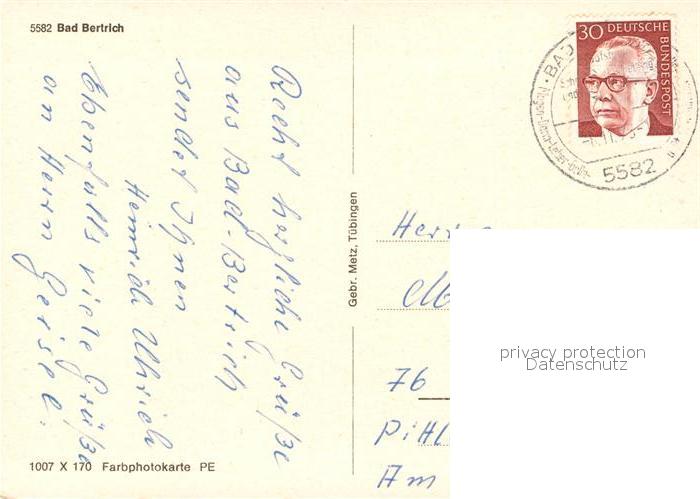 5582 Bad Bertrich
Recht herzliche Grüße
aus Bad-Bertrich
sendet Ihnen
Heinrich Ulrich
Ebenfalls viele Grüße
an Herrn Geisel.
1007 X 170 Farbphotokarte PE
Gebr. Metz, Tübingen
30 DEUTSCHE
BUNDESPOST
BAD
5582
76
Am
privacy protection
Datenschutz